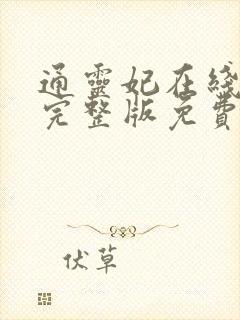 通靈妃在綫
完整版免費
伏草